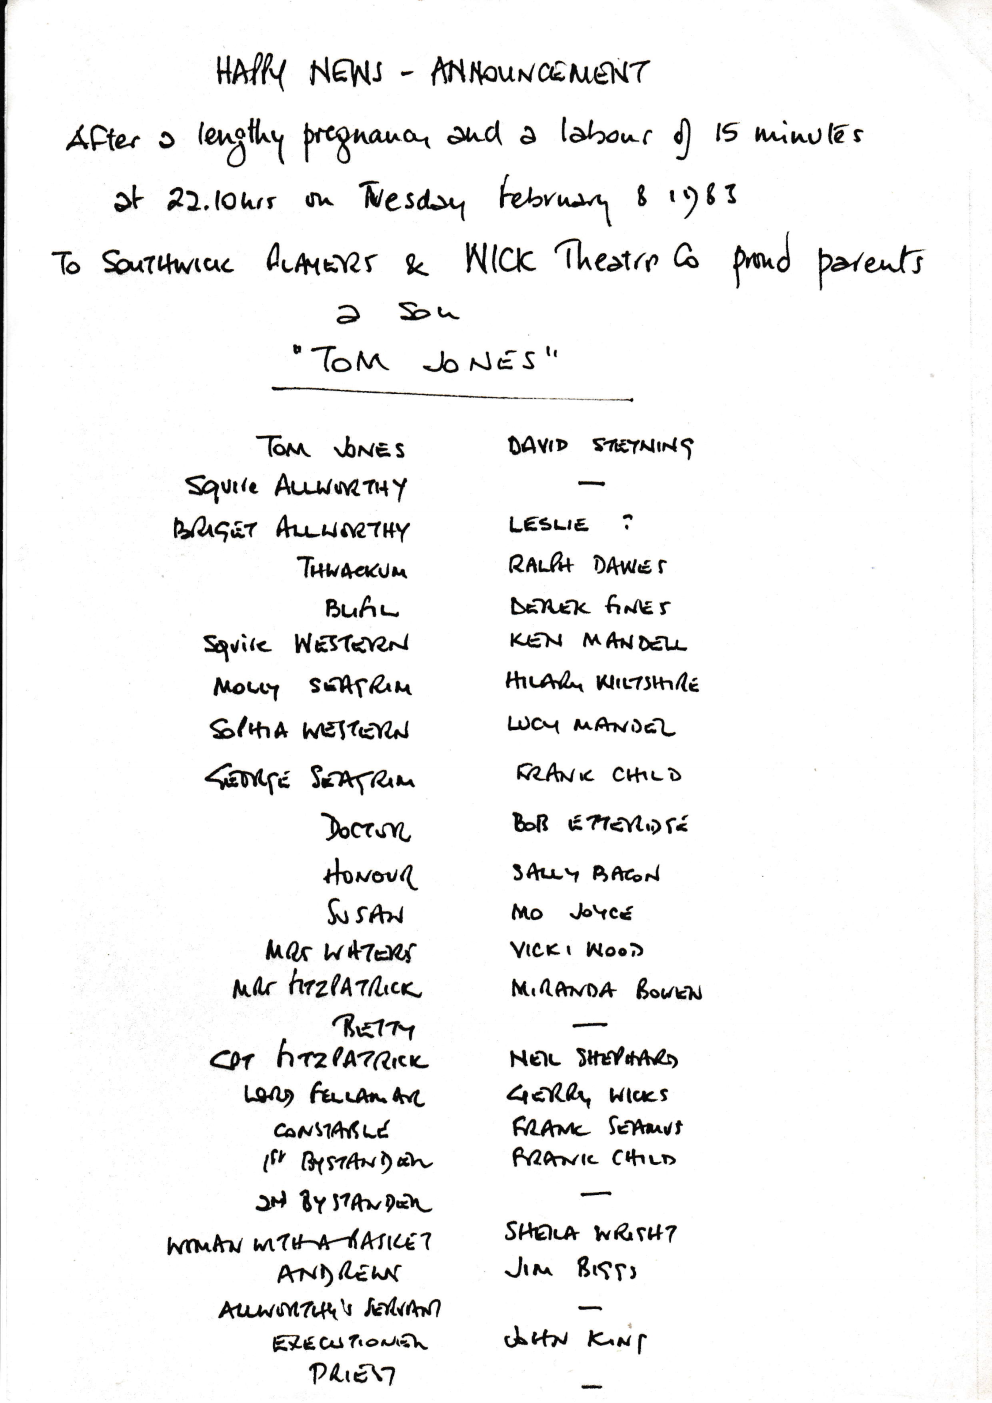 HAPPY NEWS - ANNOUNCEMENT
After a lengthy pregnancy and a labour of 15 minutes
at 22.10hrs on Tuesday February 8 1983
To SOUTHWICK PLAYERS & WICK Theatre Co proud parents
a son
"TOM JONES"
TOM JONES DAVID STEYNING
Squire ALLWORTHY —
BRIGET ALLWORTHY LESLIE ?
THWACKUM RALPH DAWES
BLIFIL DEREK FINES
Squire WESTERN KEN MANDELL
MOLLY SEAGRIM HILARY WILTSHIRE
SOPHIA WESTERN LUCY MANDEL
GEORGE SEAGRIM FRANK CHILD
DOCTOR BOB ETTERIDGE
HONOUR SALLY BACON
SUSAN MO JOYCE
MRS WATERS VICKI WOOD
MRS FITZPATRICK MIRANDA BOWEN
BETTY —
CPT FITZPATRICK NEIL SHEPHARD
LORD FELLAMAR GERRY WICKS
CONSTABLE FRANK SEAMUS
1ST BYSTANDER FRANK CHILD
2ND BYSTANDER —
WOMAN WITH A BASKET SHEILA WRIGHT
ANDREW JIM BIGGS
ALLWORTHY'S SERVANT —
EXECUTIONER JOHN KING
PRIEST —